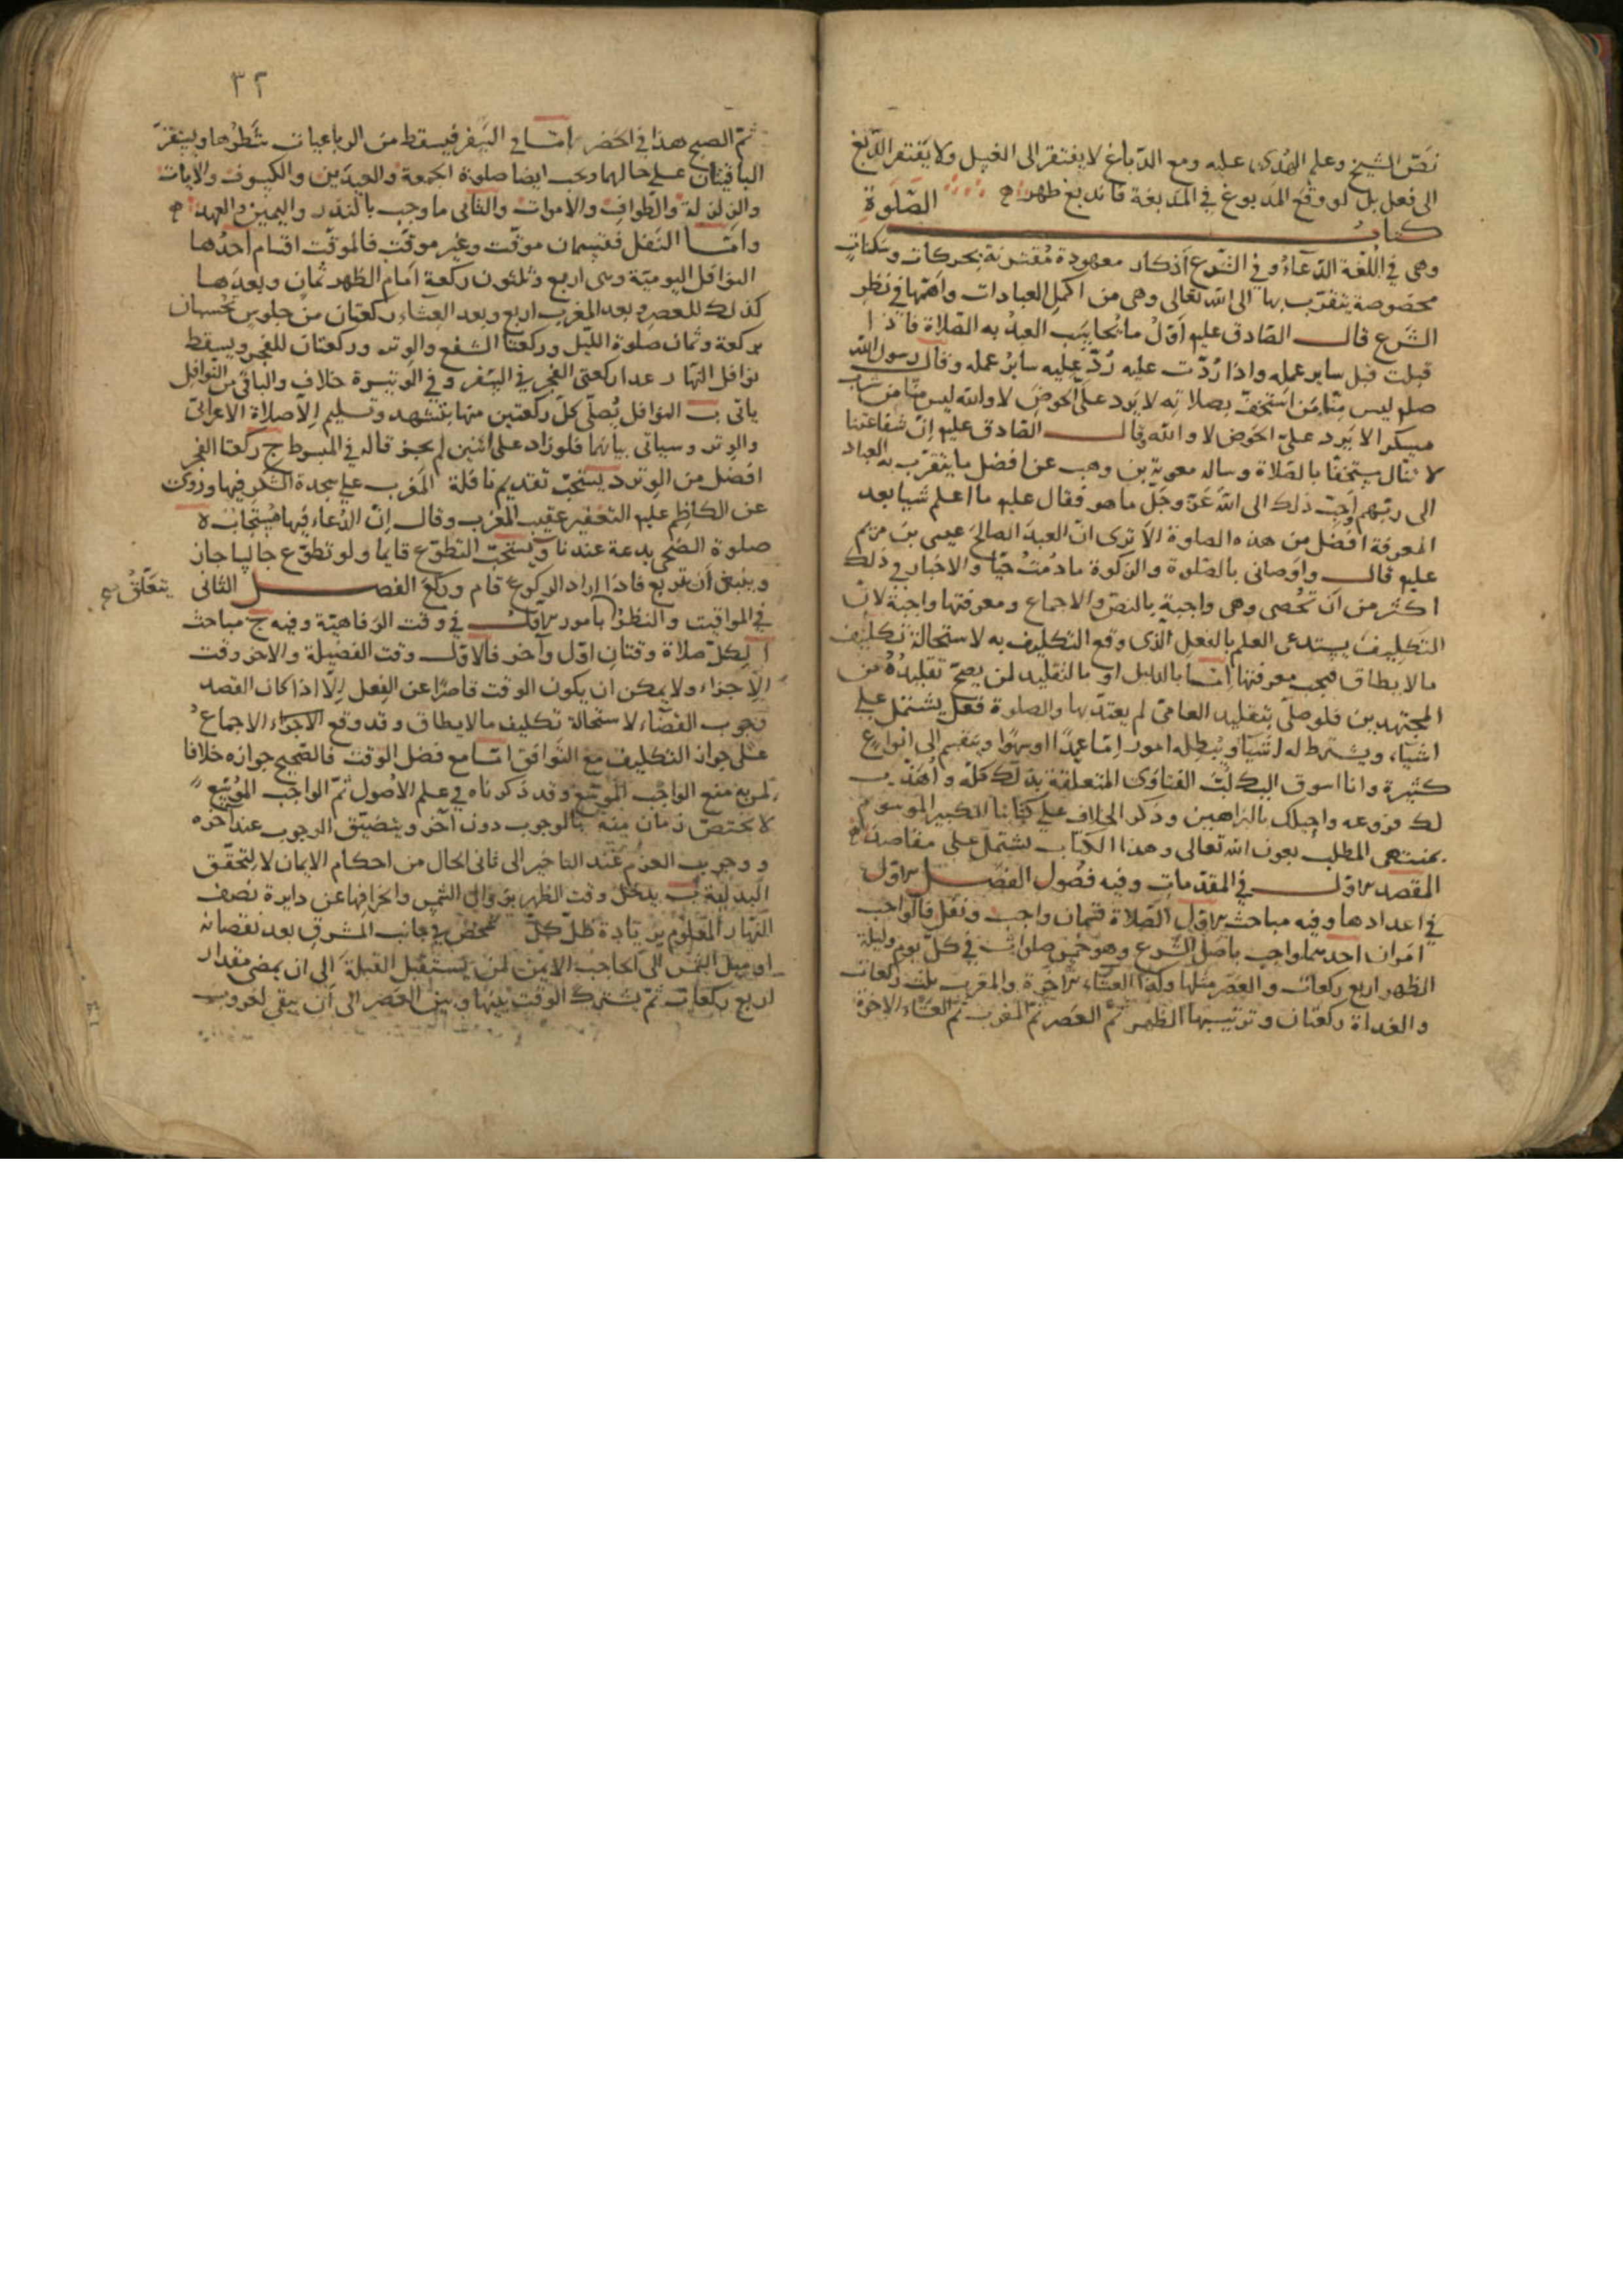 نصّ الشيخ وعلم الهدى عليه ومع الدباغ لا يفتقر الى الغسل ولا يفتقر الدبغ
الى فعل بل لو وقع المدبوغ في المدبغة فاندبغ طهر
كتاب الصلوة
وهى في اللغة الدعاء وفي الشرع أذكار معهودة مقترنة بحركات وسكنات
مخصوصة يتقرب بها الى الله تعالى وهى من اكمل العبادات واهمها في نظر
الشرع قال الصادق عليه أول ما يحاسب العبد به الصلاة فاذا
قبلت قبل ساير عمله واذا ردّت عليه ردّ عليه ساير عمله وقال رسول الله
صلع ليس منا من استخف بصلاته لا يرد علىّ الحوض لا والله ليس منا من شرب
مسكرا لا يرد علىّ الحوض لا والله وقال الصادق عليه انّ شفاعتنا
لا تنال مستخفا بالصلاة وساله معوية بن وهب عن افضل ما يتقرب به العباد
الى ربهم وأحب ذلك الى الله عز وجل ما هو فقال عليه ما اعلم شيا بعد
المعرفة افضل من هذه الصلوة الا ترى انّ العبد الصالح عيسى بن مريم
عليه قال واوصانى بالصلوة والزكوة ما دمت حيّا والاخبار في ذلك
اكثر من أن تحصى وهى واجبة بالنص والاجماع ومعرفتها واجبة لان
التكليف يستدعى العلم بالفعل الذى وقع التكليف به لاستحالة تكليف
ما لا يطاق فيجب معرفتها امّا بالدليل او بالتقليد لمن يصح تقليده من
المجتهدين فلو صلّى بتقليد العامى لم يعتدّ بها والصلوة فعل يشتمل على
اشياء ويشترط له اشيا ويبطله امور امّا عمدا او سهوا وينقسم الى انواع
كثيرة وانا اسوق اليك لبّ الفتاوى المتعلقة بذلك كله وأهذب
لك فروعه واحيلك بالبراهين وذكر الخلاف على كتابنا الكبير الموسوم
بمنتهى المطلب بعون الله تعالى وهذا الكتاب يشتمل على مقاصد
المقصد الاول في المقدمات وفيه فصول الفصل الاول
في اعدادها وفيه مباحث الاول الصلاة قسمان واجب ونفل فالواجب
امران احدهما واجب باصل الشرع وهو خمس صلوات في كل يوم وليلة
الظهر اربع ركعات والعصر مثلها وكذا العشاء الآخرة والمغرب ثلث ركعات
والغداة ركعتان وترتيبها الظهر ثم العصر ثم المغرب ثم العشاء الاخرة
٣٢
ثم الصبح هذا في الحضر امّا في السفر فيسقط من الرباعيات شطرها ويستقر
الباقيتان على حالهما ويجب ايضا صلوة الجمعة والعيدين والكسوف والآيات
والزلزلة والطواف والاموات والثانى ما وجب بالنذر واليمين والعهد
وامّا النفل فقسمان موقّت وغير موقّت فالموقّت اقسام أحدها
النوافل اليومية وهى اربع وثلثون ركعة امام الظهر ثمان وبعدها
كذلك للعصر وبعد المغرب اربع وبعد العشاء ركعتان من جلوس تحسبان
بركعة وثمان صلوة الليل وركعتا الشفع والوتر وركعتان للفجر ويسقط
نوافل النهار عدا ركعتى الفجر في السفر وفي الوتيرة خلاف والباقى من النوافل
ياتى ب النوافل يصلّى كل ركعتين منها بتشهد وتسليم الا صلاة الاعرابى
والوتر وسياتى بيانهما فلو زاد على اثنين لم يجز قاله في المبسوط ج ركعتا الفجر
افضل من الوتر د يستحب تقديم نافلة المغرب على سجدة الشكر فيها وروى
عن الكاظم عليه التعفير عقيب المغرب وقال إنّ الدعاء فيها مستجاب ه
صلوة الضحى بدعة عندنا و يستحب التطوع قايما ولو تطوع جالسا جاز
وينبغى أن يتربع فاذا اراد الركوع قام وركع الفصل الثانى
في المواقيت والنظر يتعلق بامور الاول في وقت الرفاهية وفيه ج مباحث
ا لكل صلاة وقتان اوّل وآخر فالاول وقت الفضيلة والاخر وقت
الاجزاء ولا يمكن ان يكون الوقت قاصرا عن الفعل الا اذا كان القصد
وجوب القضاء لاستحالة تكليف ما لا يطاق وقد وقع الاجماع
على جواز التكليف مع التوافق امّا مع فضل الوقت فالصحيح جوازه خلافا
لمن منع الواجب الموسّع وقد ذكرناه في علم الاصول ثم الواجب الموسّع
لا يختصّ زمان منه بالوجوب دون آخر ويتضيق الوجوب عند آخره
ووجوب العزم عند التاخير الى ثانى الحال من احكام الايمان لا لتحقق
البدلية ب يدخل وقت الظهر بزوال الشمس وانحرافها عن دايرة نصف
النهار المعلوم بزيادة ظلّ كلّ شخص في جانب المشرق بعد نقصانه
او ميل الشمس الى الحاجب الايمن لمن يستقبل القبلة الى ان يمضى مقدار
اربع ركعات ثم يشترك الوقت بينها وبين العصر الى أن يبقى لغروب